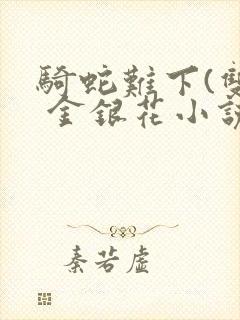 騎蛇難下(雙
金銀花小説
秦若虛